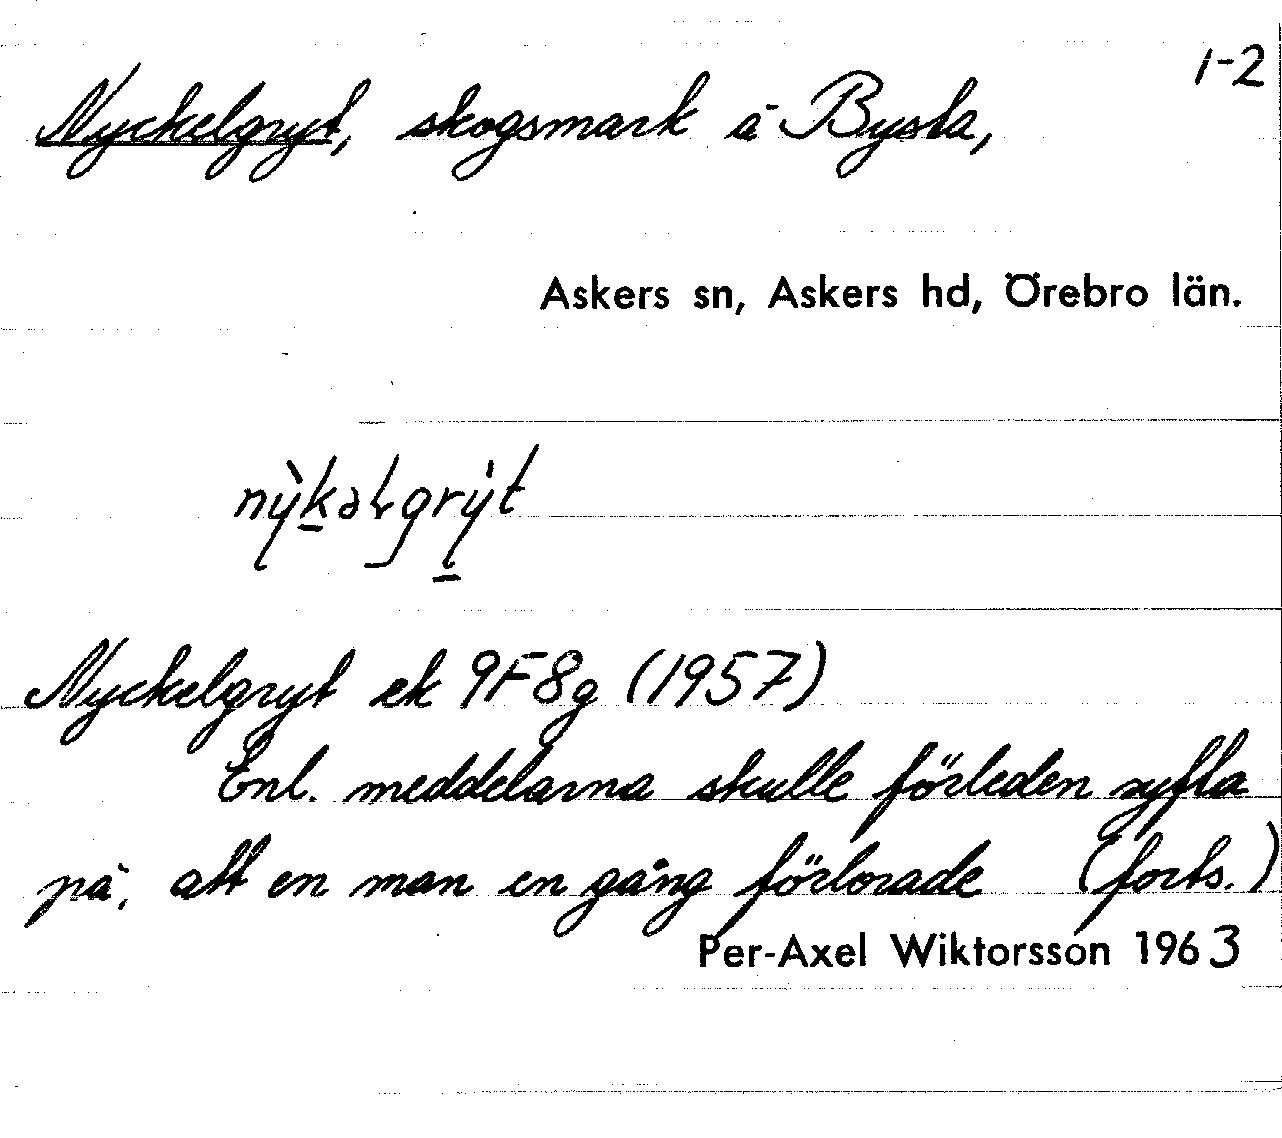 1-2
Nyckelgryt, skogsmark å Bysta,
Askers sn, Askers hd, Örebro län.
Nyckelgryt ek 9F8g (1957)
Enl. meddelarna skulle förleden syfta
på, att en man en gång förlorade (forts.)
Per-Axel Wiktorsson 1963